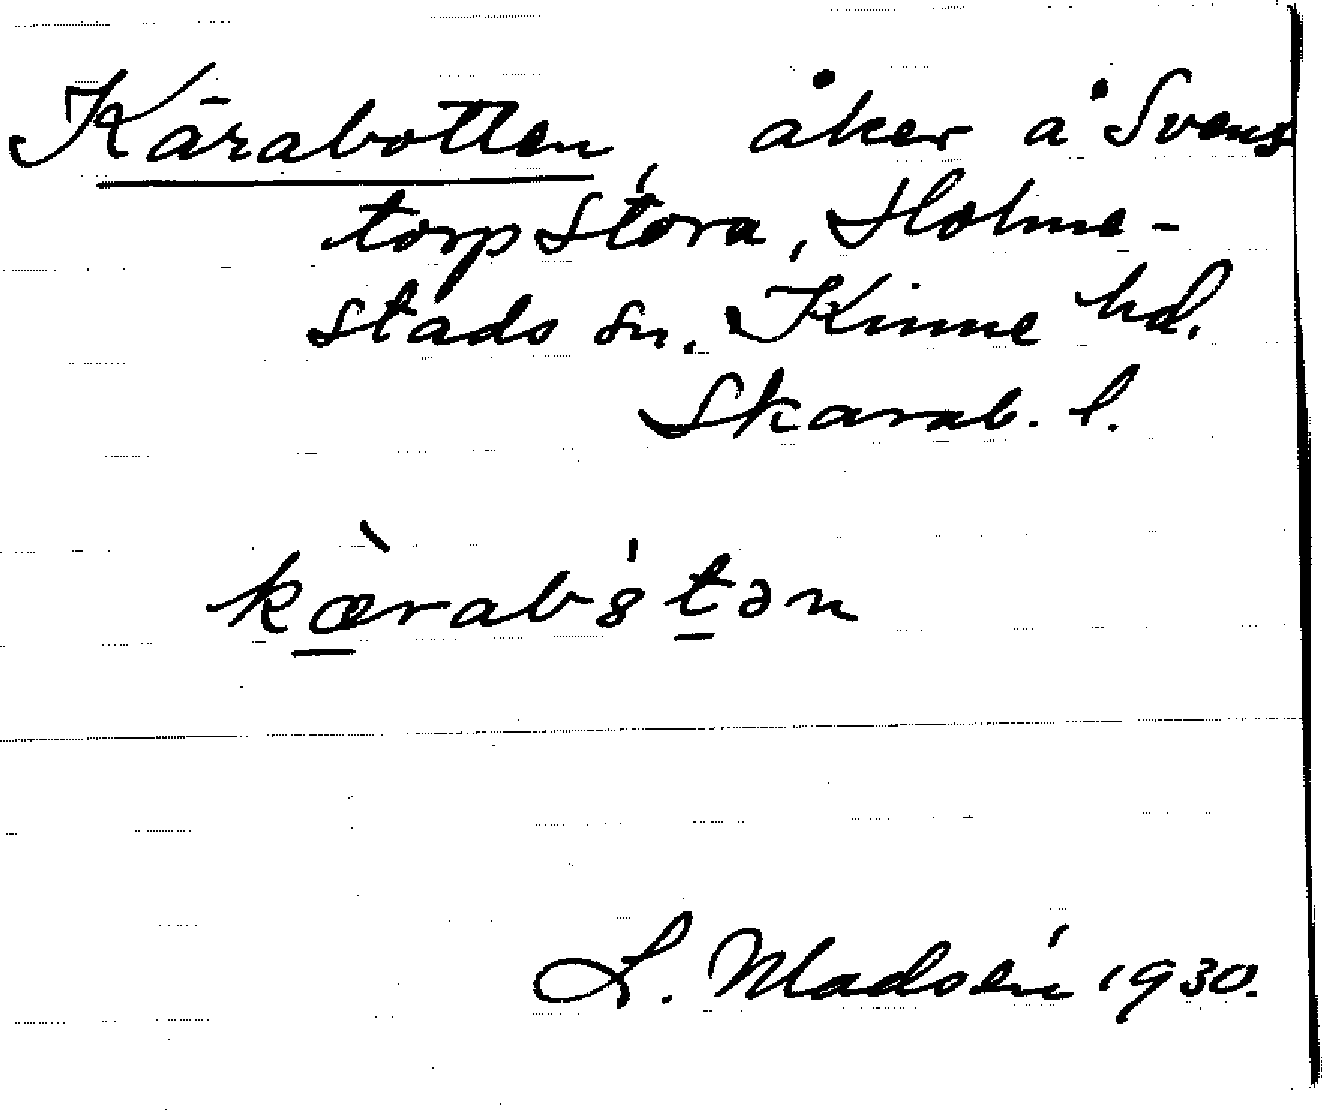 Kärabotten, åker å Svens
torp Stora, Holme-
stads sn. Kinne hd.
Skarab. l.
kæ̀rabó̤tən
L. Madsén 1930.